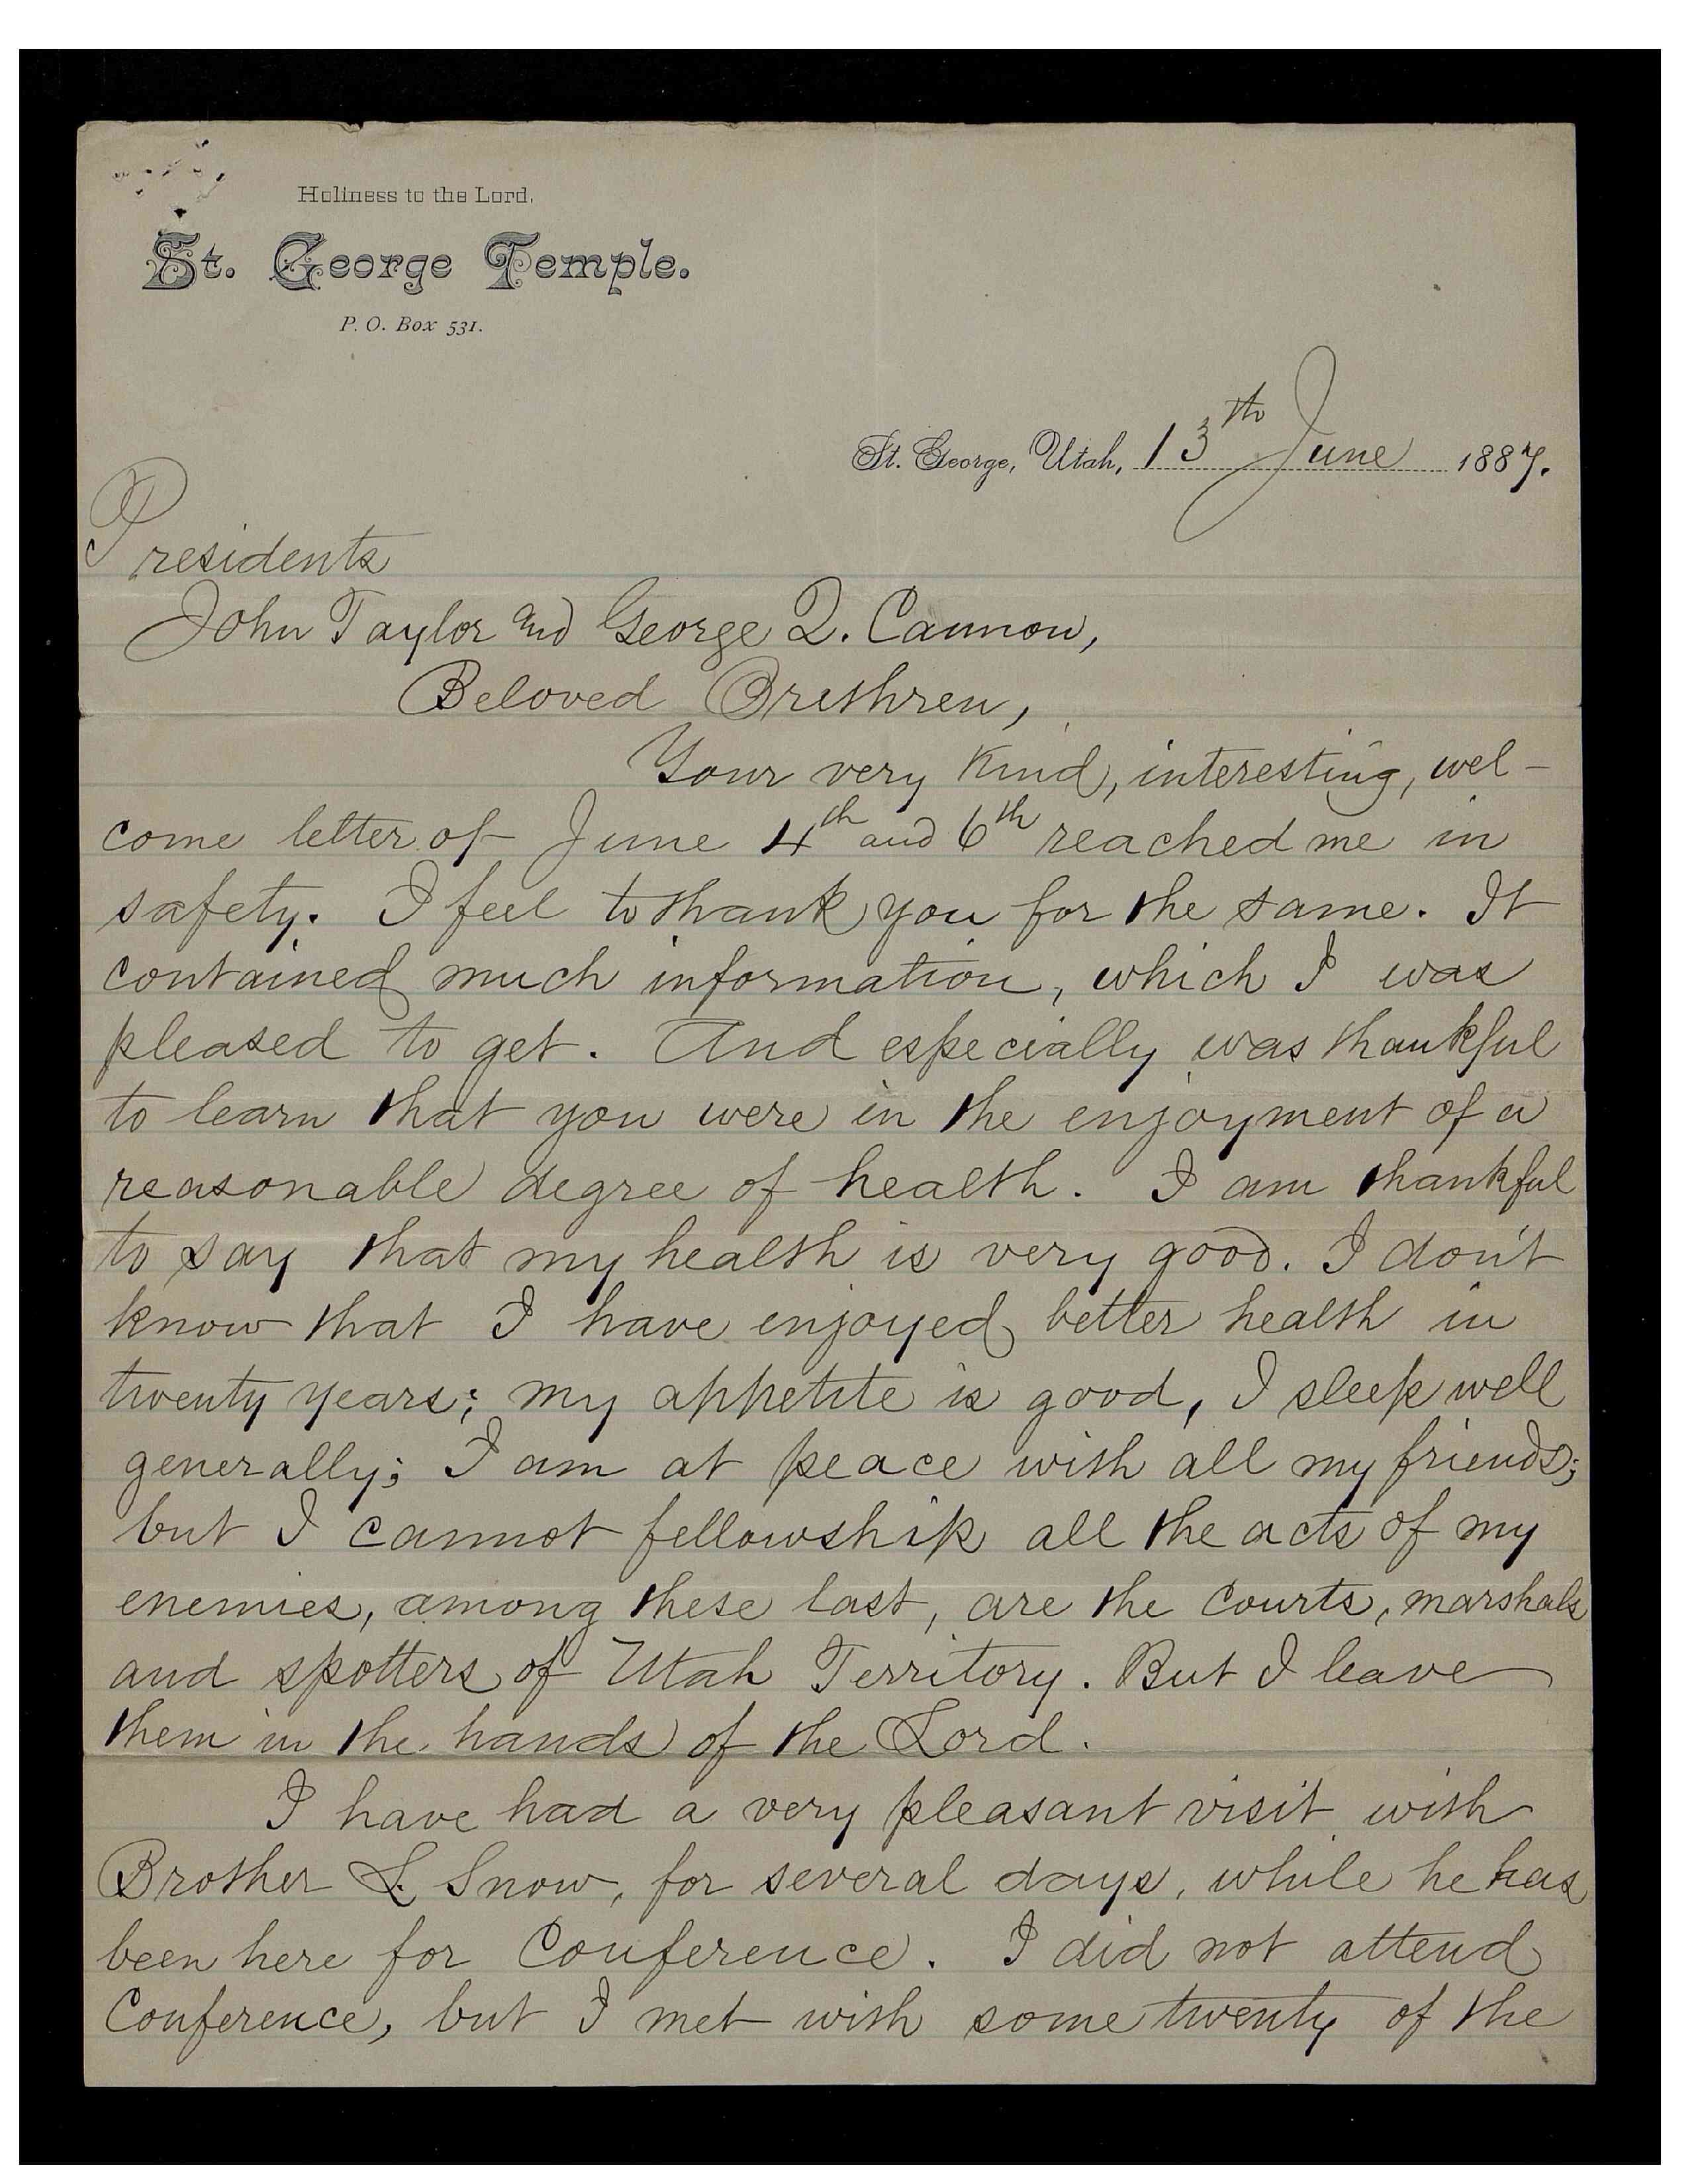 Holiness to the Lord.
St. George Temple.
P. O. Box 531.
St. George, Utah, 13th June 1887.
Presidents
John Taylor and George Q. Cannon,
Beloved Brethren,
Your very kind, interesting, wel-
come letter of June 4th and 6th reached me in
safety. I feel to thank you for the same. It
contained much information, which I was
pleased to get. And especially was thankful
to learn that you were in the enjoyment of a
reasonable degree of health. I am thankful
to say that my health is very good. I don't
know that I have enjoyed better health in
twenty years; my appetite is good, I sleep well
generally; I am at peace with all my friends;
but I cannot fellowship all the acts of my
enemies, among these last, are the Courts, marshals
and spotters of Utah Territory. But I leave
them in the hands of the Lord.
I have had a very pleasant visit with
Brother L. Snow, for several days, while he has
been here for Conference. I did not attend
Conference, but I met with some twenty of the